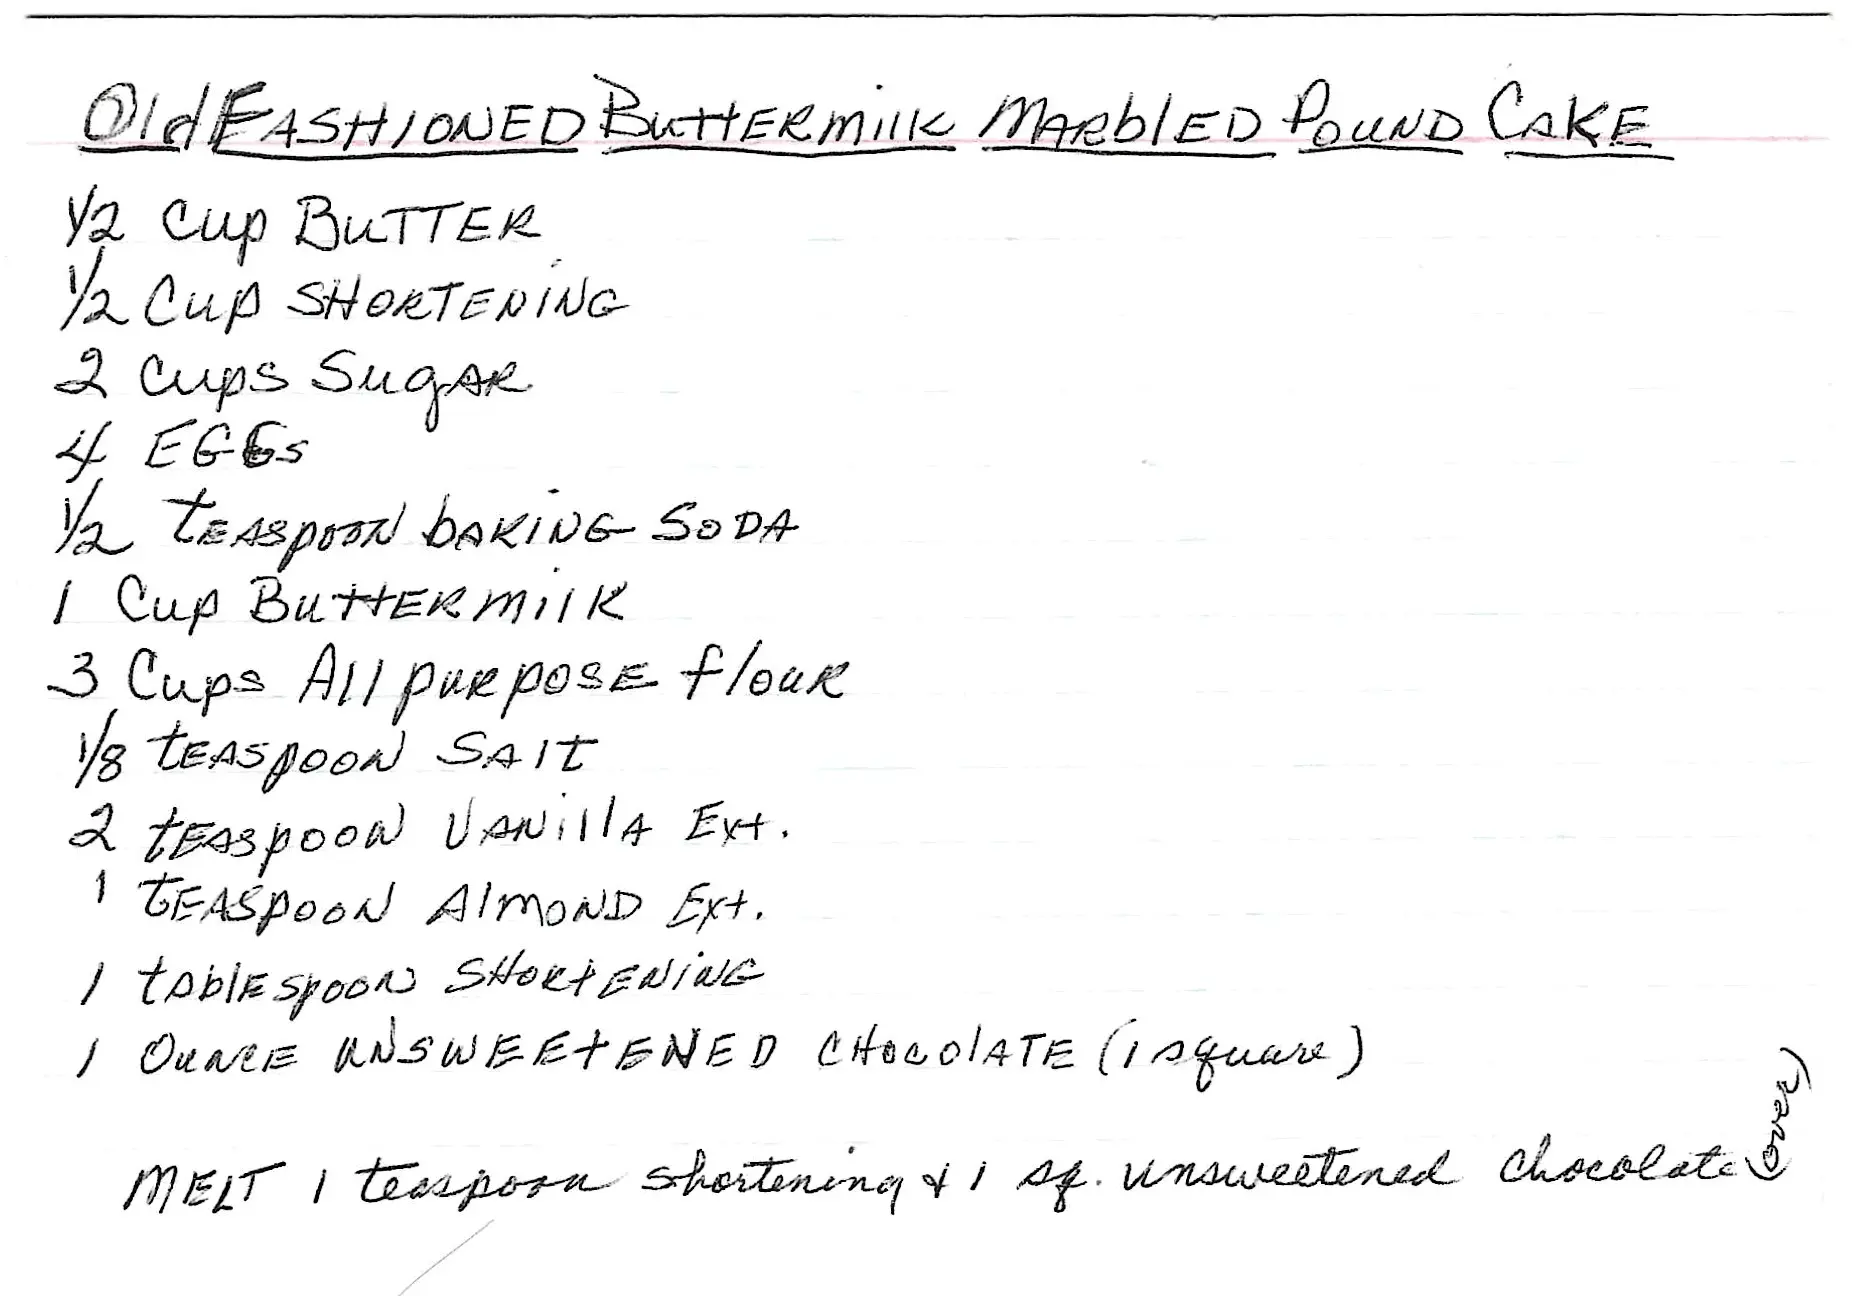 Old FASHIONED ButtERmilk MARblED POUND CAKE
1/2 cup BuTTER
1/2 Cup SHORTENiNG
2 Cups SugAR
4 EGGs
1/2 TEASpooN bAKiNG SODA
1 Cup ButtERmilk
3 Cups All puRpOSE flouR
1/8 tEASpOON SAlt
2 tEASpOON VANillA Ext.
1 tEASpOON AlmOND Ext.
1 tAblEspooN SHORtENiNG
1 OuNcE uNSWEEtENED CHocolATE (1 square)
(over)
MELT 1 teaspoon shortening & 1 sq. unsweetened chocolate